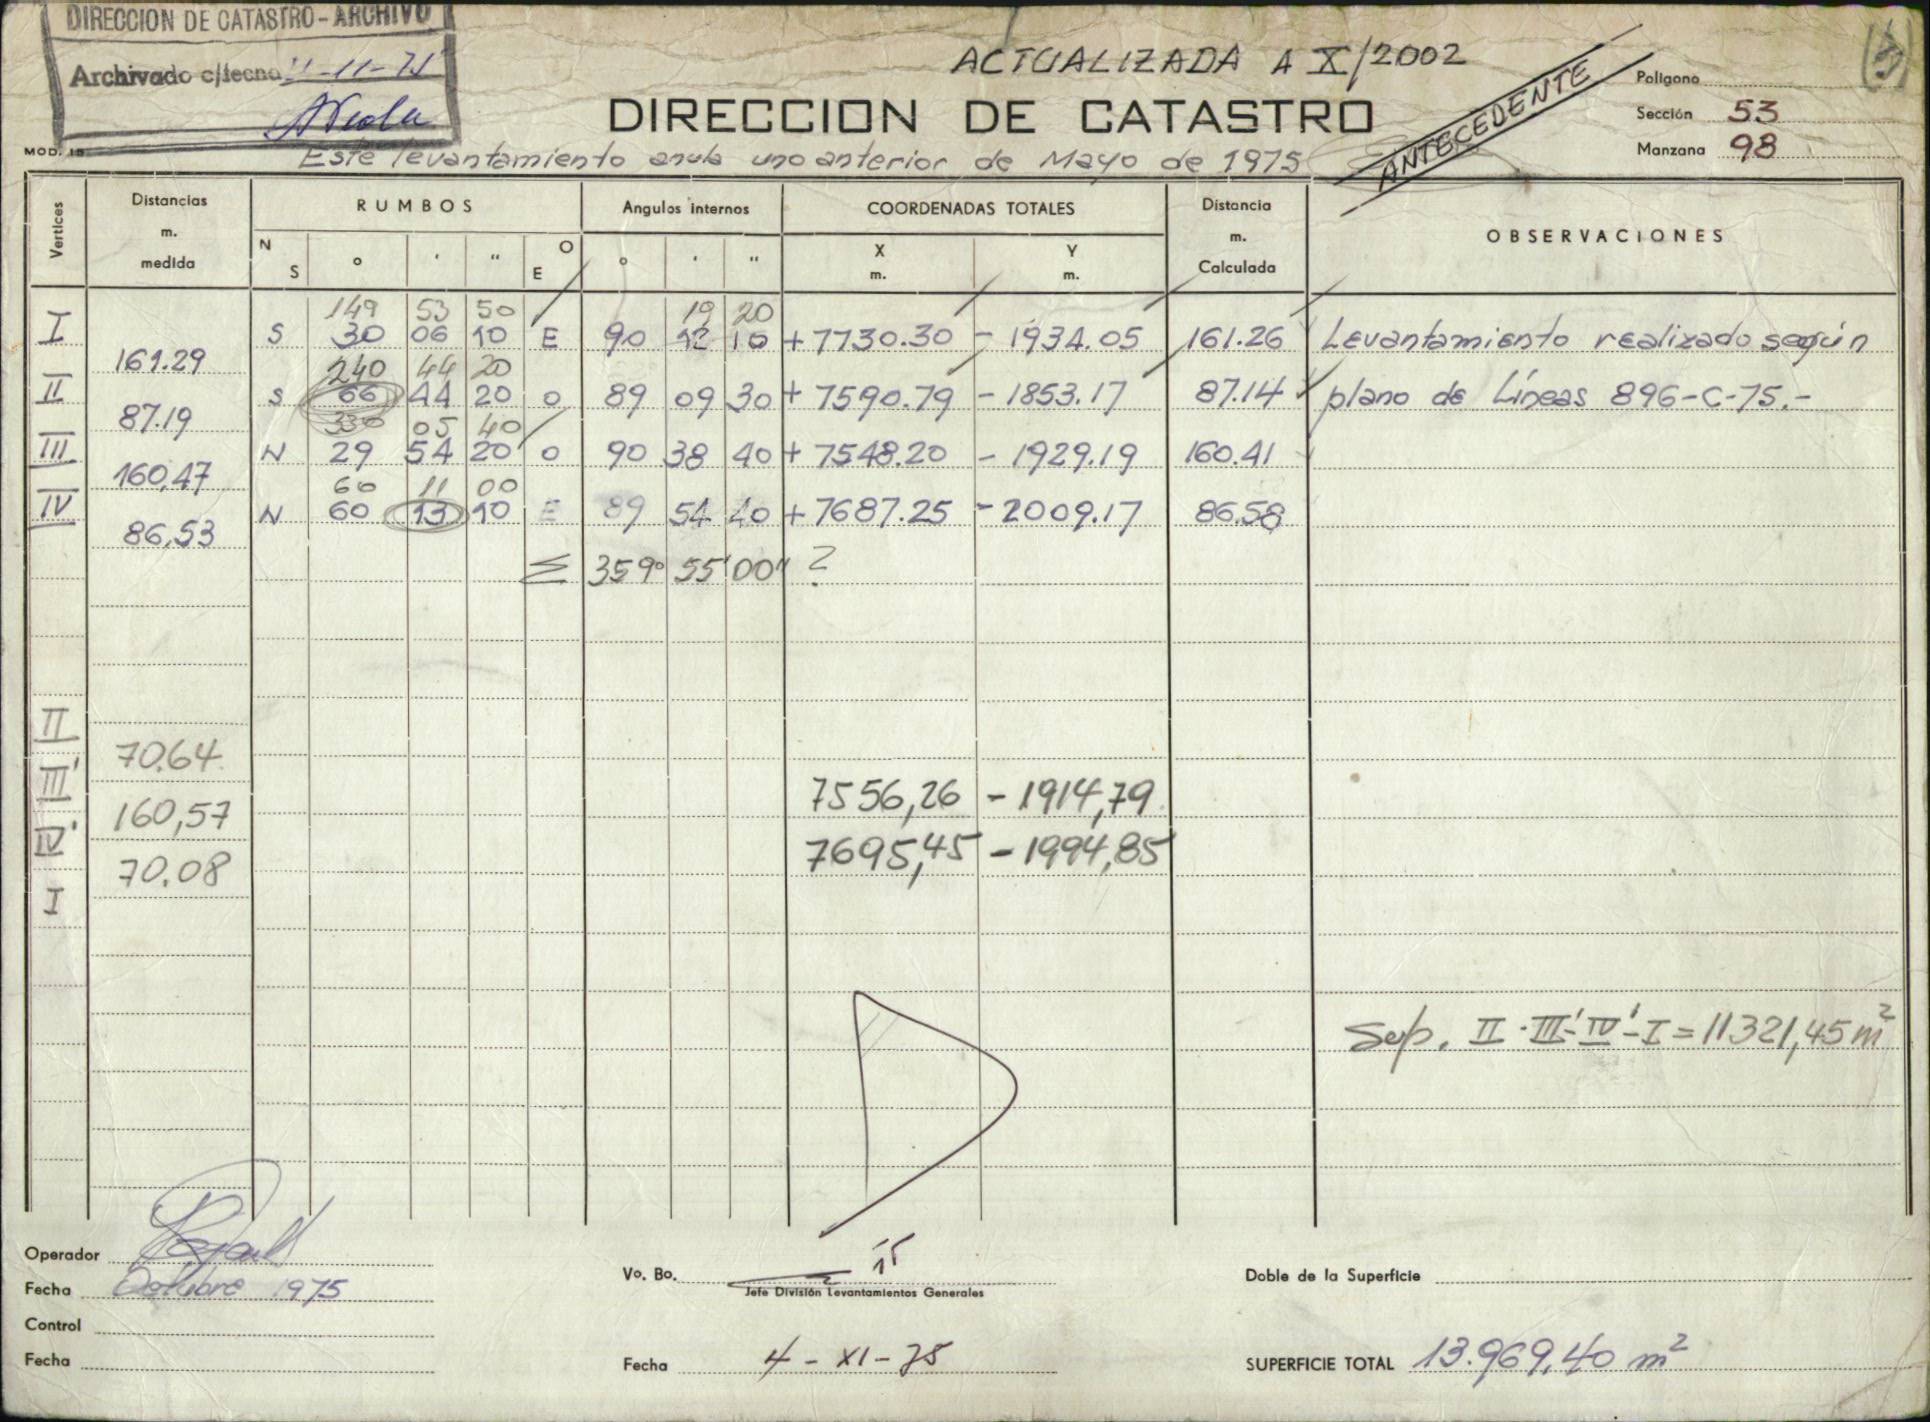 DIRECCION DE CATASTRO - ARCHIVO
Archivado c/fecha 11-11-75
ACTUALIZADA A X/2002
DIRECCION DE CATASTRO
ANTECEDENTE
Polígono
Sección 53
Manzana 98
MOD. 15
Este levantamiento anula uno anterior de Mayo de 1975
Vertices
Distancias m. medida
RUMBOS
N S ° ' " O E
Angulos internos
° ' "
COORDENADAS TOTALES
X m. Y m.
Distancia m. Calculada
OBSERVACIONES
149 53 50 19 20
I S 30 06 10 E 90 12 10 +7730.30 -1934.05 161.26 Levantamiento realizado según
161.29 240 44 20
II S 66 44 20 O 89 09 30 +7590.79 -1853.17 87.14 plano de Líneas 896-C-75.-
87.19 330 05 40
III N 29 54 20 O 90 38 40 +7548.20 -1929.19 160.41
160,47 60 11 00
IV N 60 13 10 E 89 54 40 +7687.25 -2009.17 86.58
86,53
Σ 359° 55' 00" ?
II
70.64
III' 7556,26 -1914,79
160,57
IV' 7695,45 -1994,85
70.08
I
Sup. II-III'-IV'-I = 11321,45 m²
Operador
Fecha Octubre 1975
Control
Fecha
Vo. Bo.
Jefe División Levantamientos Generales
Fecha 4-XI-75
Doble de la Superficie
SUPERFICIE TOTAL 13.969,40 m²